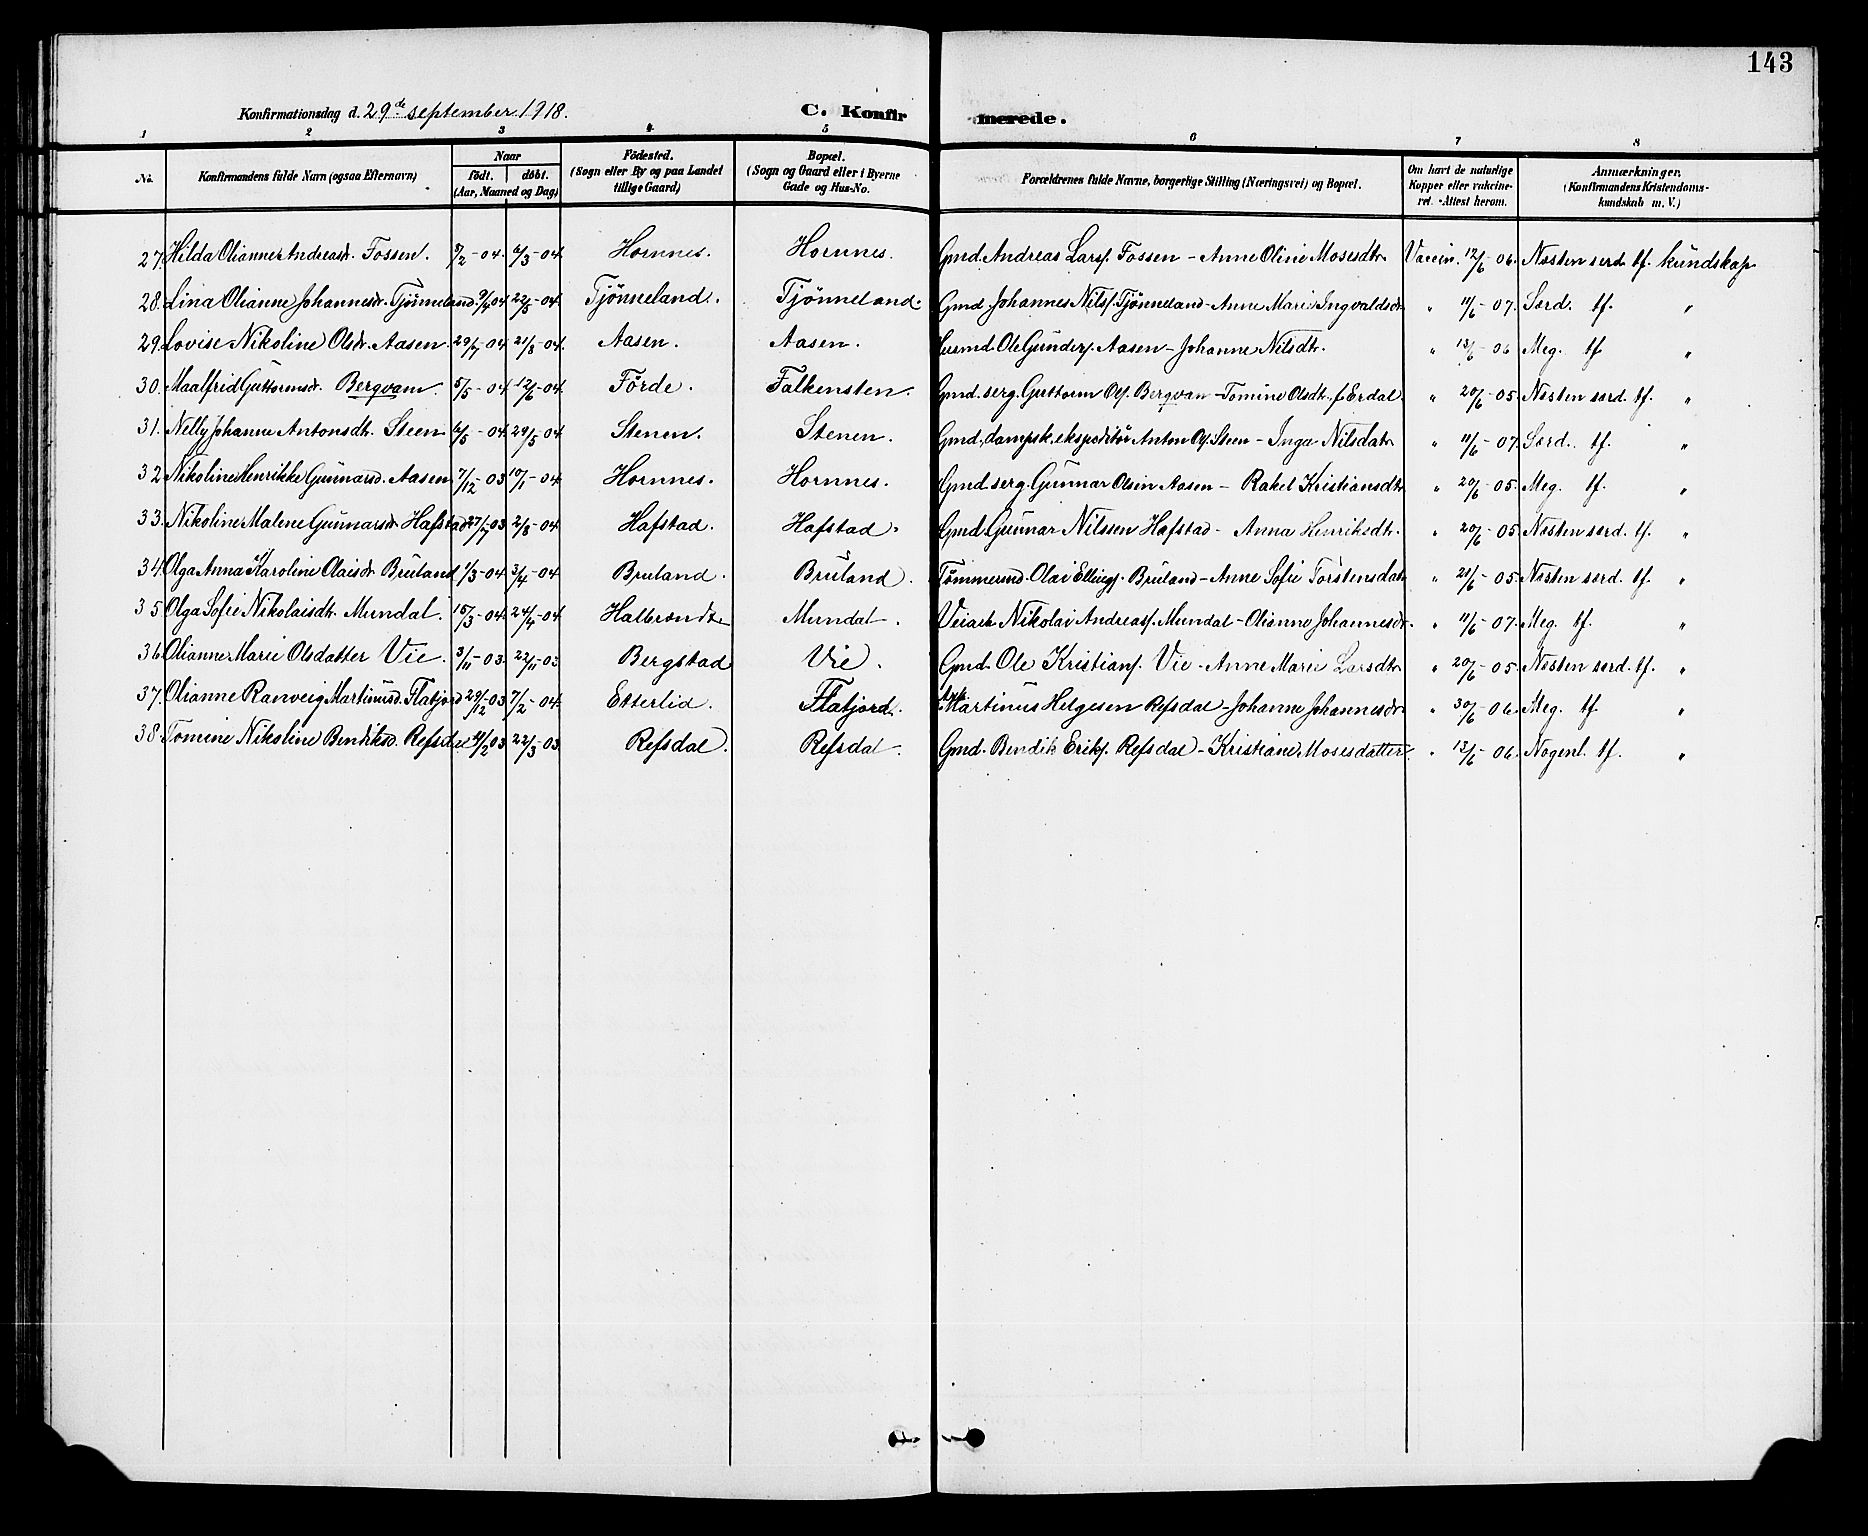 143
Konfirmationsdag d. 29de september 1918.
C. Konfirmerede.
1 2 3 4 5 6 7 8
No. Konfirmandens fulde Navn (ogsaa Efternavn) Naar födt. döbt. (Aar, Maaned og Dag) Födested. (Sogn eller By og paa Landet tillige Gaard) Bopæl. (Sogn og Gaard eller i Byerne Gade og Hus-No. Forældrenes fulde Navne, borgerlige Stilling (Næringsvei) og Bopæl. Om havt de naturlige Kopper eller vakcineret. - Attest herom. Anmærkninger. (Konfirmandens Kristendomskundskab m. V.)
27. Hilda Olianne Andreasdr. Fossen. 5/2-04. 6/3-04 Hornnes. Hornnes. Gmd. Andreas Larsf. Fossen - Anne Oline Mosesdtr. Vaccin. 12/6 06. Næsten serd. tf. kundskap
28. Lina Olianne Johannesdr. Tjønneland. 9/4 04 22/5-04 Tjönneland. Tjönneland. Gmd. Johannes Nilsf. Tjønneland - Anne Marie Ingvaldsdtr " 11/6-07. Serd. tf. "
29. Lovise Nikoline Olsdr. Aasen. 29/7-04 21/8-04. Aasen. Aasen. Husmd. Ole Gundersf. Aasen - Johanne Nilsdtr. " 13/6-06 Meg. tf "
30. Maalfrid Guttormsdr. Bergvam. 5/5-04 12/6-04. Förde. Falkensten. Gmd. serg. Guttorm Olsf. Bergvam - Tomine Olsdtr. f. Erdal. " 20/6-05. Næsten serd. tf. "
31. Nelly Johanne Antonsdtr. Steen 6/5-04 29/5-04 Stenen. Stenen. Gmd, dampsk. ekspeditör Anton Olsf. Steen - Inga Nilsdatr " 11/6-07. Serd. tf. "
32 Nikoline Henrikke Gunnarsd. Aasen 7/12-03 10/1-04 Hornnes. Hornnes. Gmd. serg. Gunnar Olsen Aasen - Rakel Kristiansdtr " 20/6-05. Meg. tf. "
33. Nikoline Malene Gunnarsdr. Hafstad 27/7 03 2/8-04 Hafstad. Hafstad. Gmd. Gunnar Nilssen Hafstad - Anna Henriksdtr. " 20/6-05 Næsten serd. tf. "
34. Olga Anna Karoline Olaisdr Bruland 1/3-04 3/4-04 Bruland. Bruland. Tømmermd. Olai Ellingsf. Bruland - Anne Sofie Torstensdatr " 21/6-05. Næsten serd. tf. "
35. Olga Sofie Nikolaisdtr. Mundal. 15/3-04. 24/4-04 Halbrendt Mundal. Veiarb. Nikolai Andreasf. Mundal - Olianne Johannesdr. " 11/6-07. Meg. tf. "
36. Olianne Marie Olsdatter Vie. 3/11-03. 22/11-03 Bergstad Vie. Gmd. Ole Kristiansf. Vie - Anne Marie Larsdtr " 20/6-05. Næsten serd. tf. "
37. Olianne Ranveig Martinusd. Flatjord 29/12 03 7/2-04. Etterlid. Flatjord. Martinus Helgesen Refsdal - Johanne Johannesdr " 30/6-06. Meg. tf "
38. Tomine Nikoline Bendiksd. Refsdal 4/2 03 22/3-03 Refsdal. Refsdal. Gmd. Bendik Eriksf. Refsdal - Kristiane Mosesdatter. " 13/6-06. Nogenl. tf. "